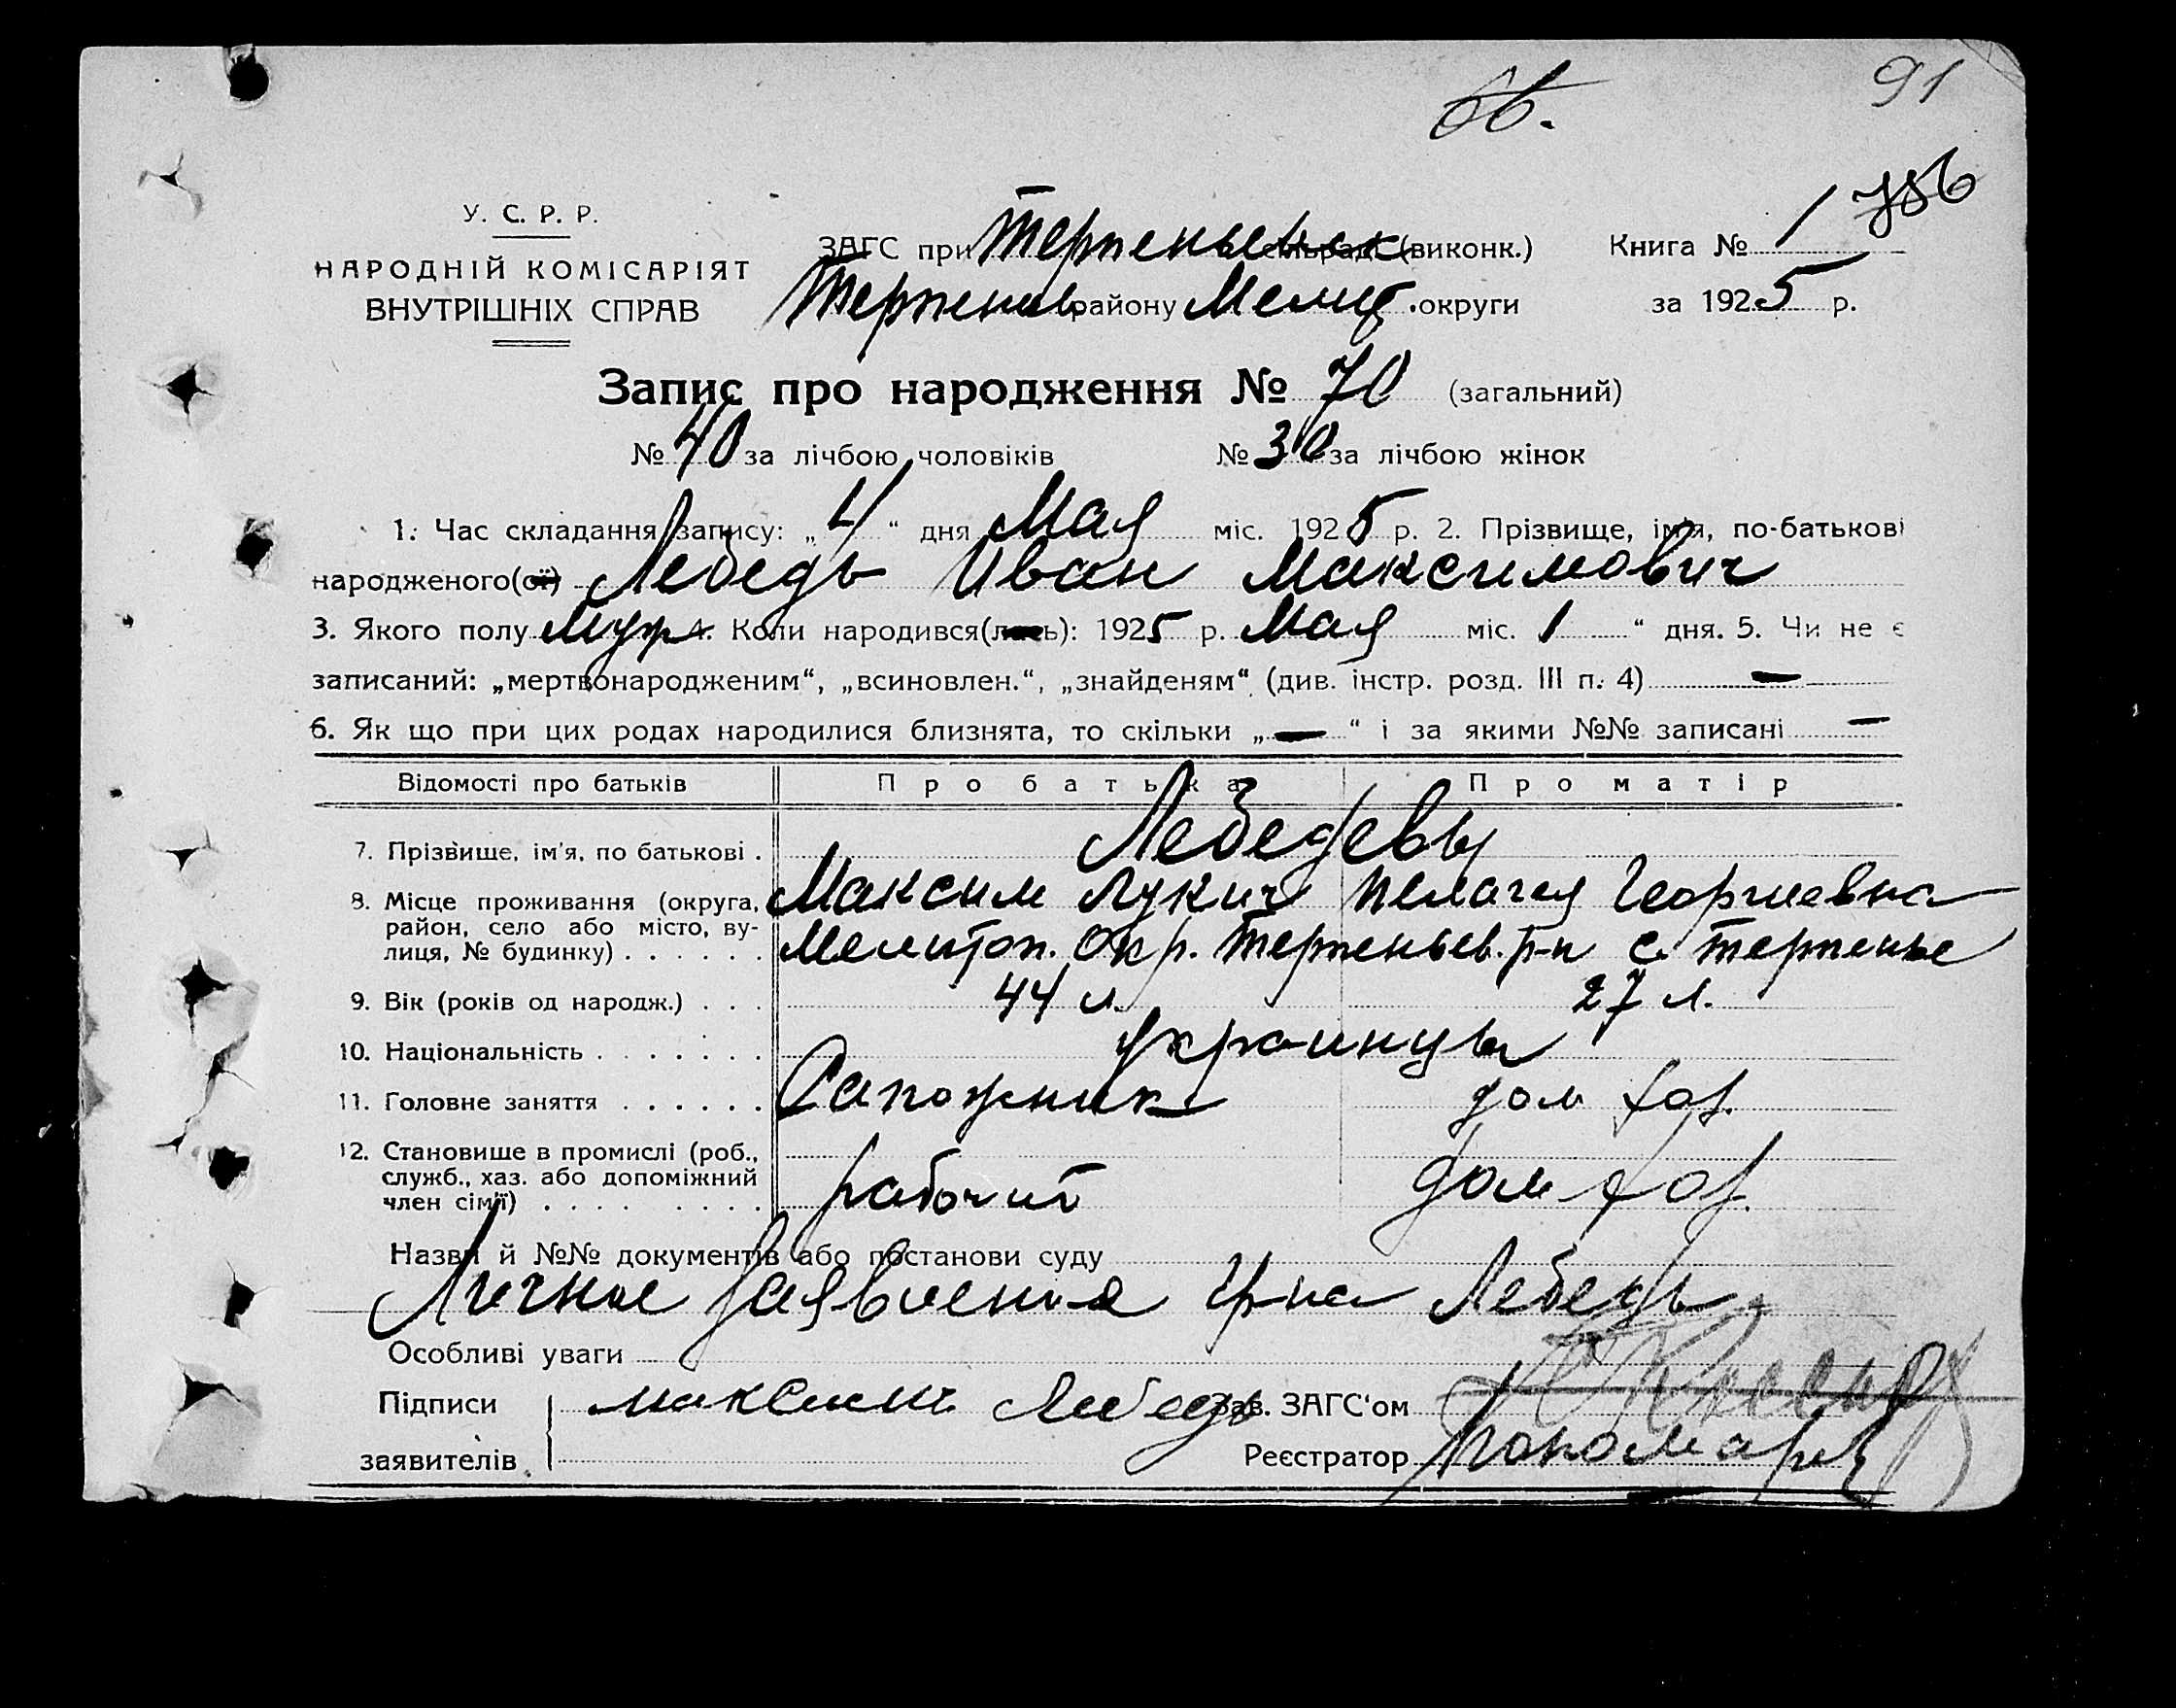 91
66.
786
У. С. Р. Р.
НАРОДНІЙ КОМІСАРІЯТ
ВНУТРІШНІХ СПРАВ
ЗАГС при Терпеньевск (виконк.) Книга № 1
Терпеньев. району Мелит. округи за 1925 р.
Запис про народження № 70 (загальний)
№ 40 за лічбою чоловіків № 30 за лічбою жінок
1. Час складання запису: „4“ дня Мая міс. 1925 р. 2. Прізвище, ім'я, по-батькові
народженого(ої) Лебедь Иван Максимович
3. Якого полу муж 4. Коли народився(лась): 1925 р. Мая міс. 1 “ дня. 5. Чи не є
записаний: „мертвонародженим“, „всиновлен.“, „знайденям“ (див. інстр. розд. III п. 4) —
6. Як що при цих родах народилися близнята, то скільки „—“ і за якими №№ записані —
Відомості про батьків Про батька Про матір
7. Прізвище, ім'я, по батькові . Лебедевы
8. Місце проживання (округа, Максим Лукич Пелагея Георгиевна
район, село або місто, ву-
лиця, № будинку) . . . . . . Мелитоп. Окр. Терпеньев. р-н с. Терпенье
9. Вік (років од народж.) . . . 44 л. 27 л.
10. Національність . . . . . . . Украинцы
11. Головне заняття . . . . . . Сапожник дом хоз.
12. Становище в промислі (роб.,
служб., хаз. або допоміжний
член сімї) . . . . . . . . рабочий дом хоз.
Назви й №№ документів або постанови суду
Личное заявление Гр-на Лебедь
Особливі уваги
Підписи Максим Лебедь Зав. ЗАГС'ом
заявителів Реєстратор Пономарев